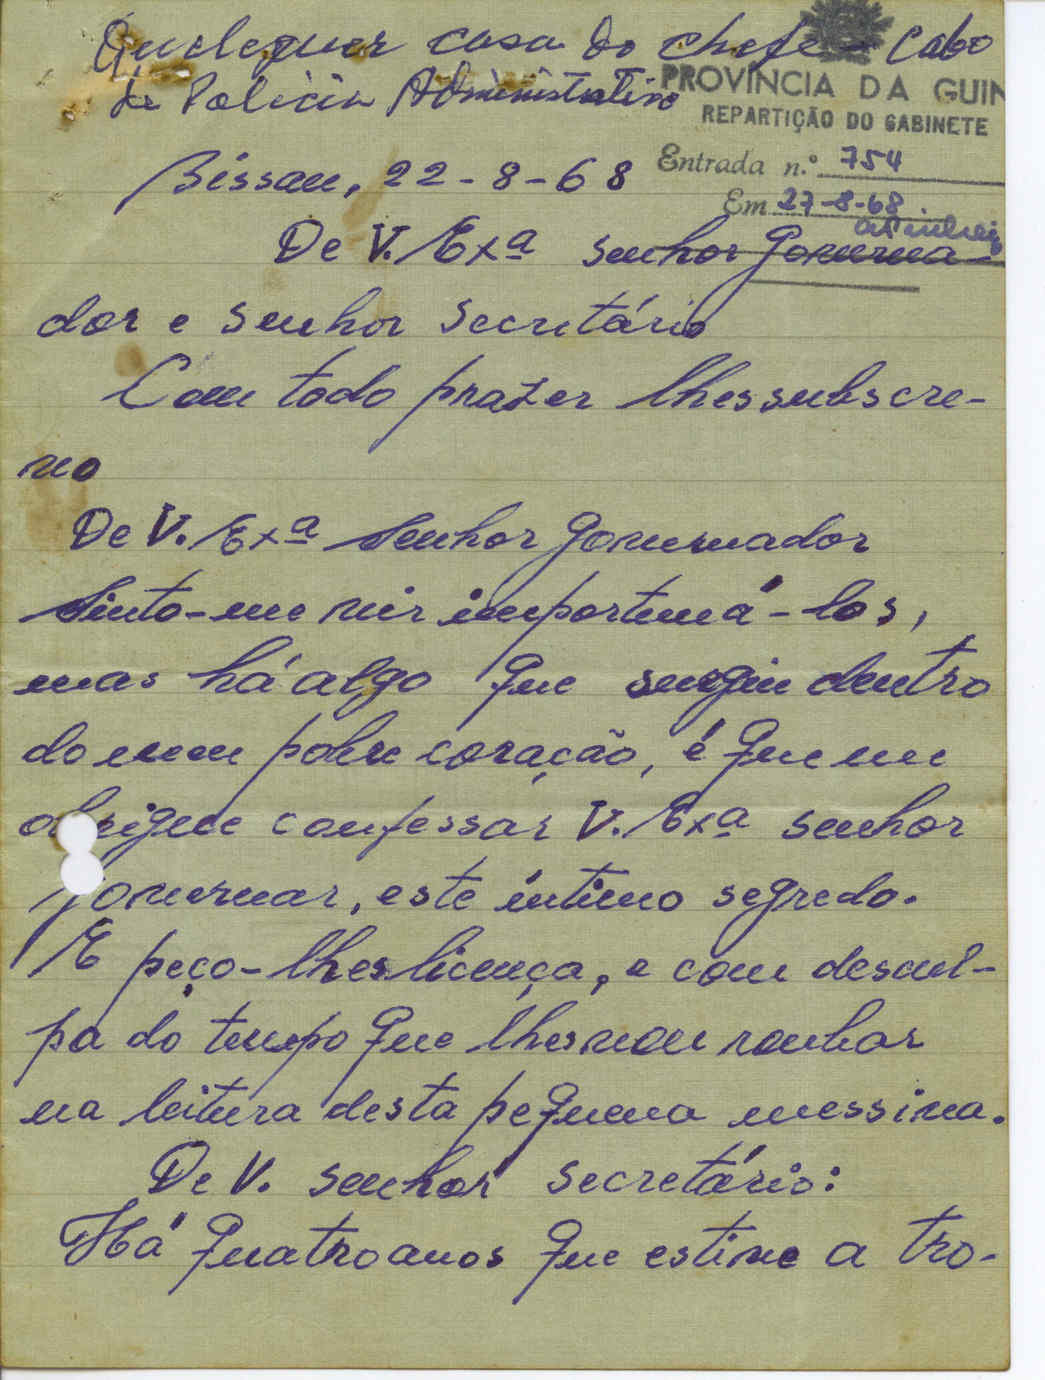 Quelequer casa do chefe - Cabo
de Policia Administrativo
PROVÍNCIA DA GUIN
REPARTIÇÃO DO GABINETE
Entrada n.º 754
Em 27-8-68
Bissau, 22-8-68
De V. Exª senhor Governa-
dor e senhor secretário
Com todo prazer lhes subscre-
vo
De V. Exª Senhor Governador
Sinto-me vir importuná-los,
mas há algo que surgiu dentro
do meu pobre coração, é que me
obrigue confessar V. Exª senhor
Governar, este íntimo segredo.
E peço-lhes licença, e com descul-
pa do tempo que lhes vou roubar
na leitura desta pequena messiva.
De V. senhor secretário:
Há quatro anos que estive a tro-